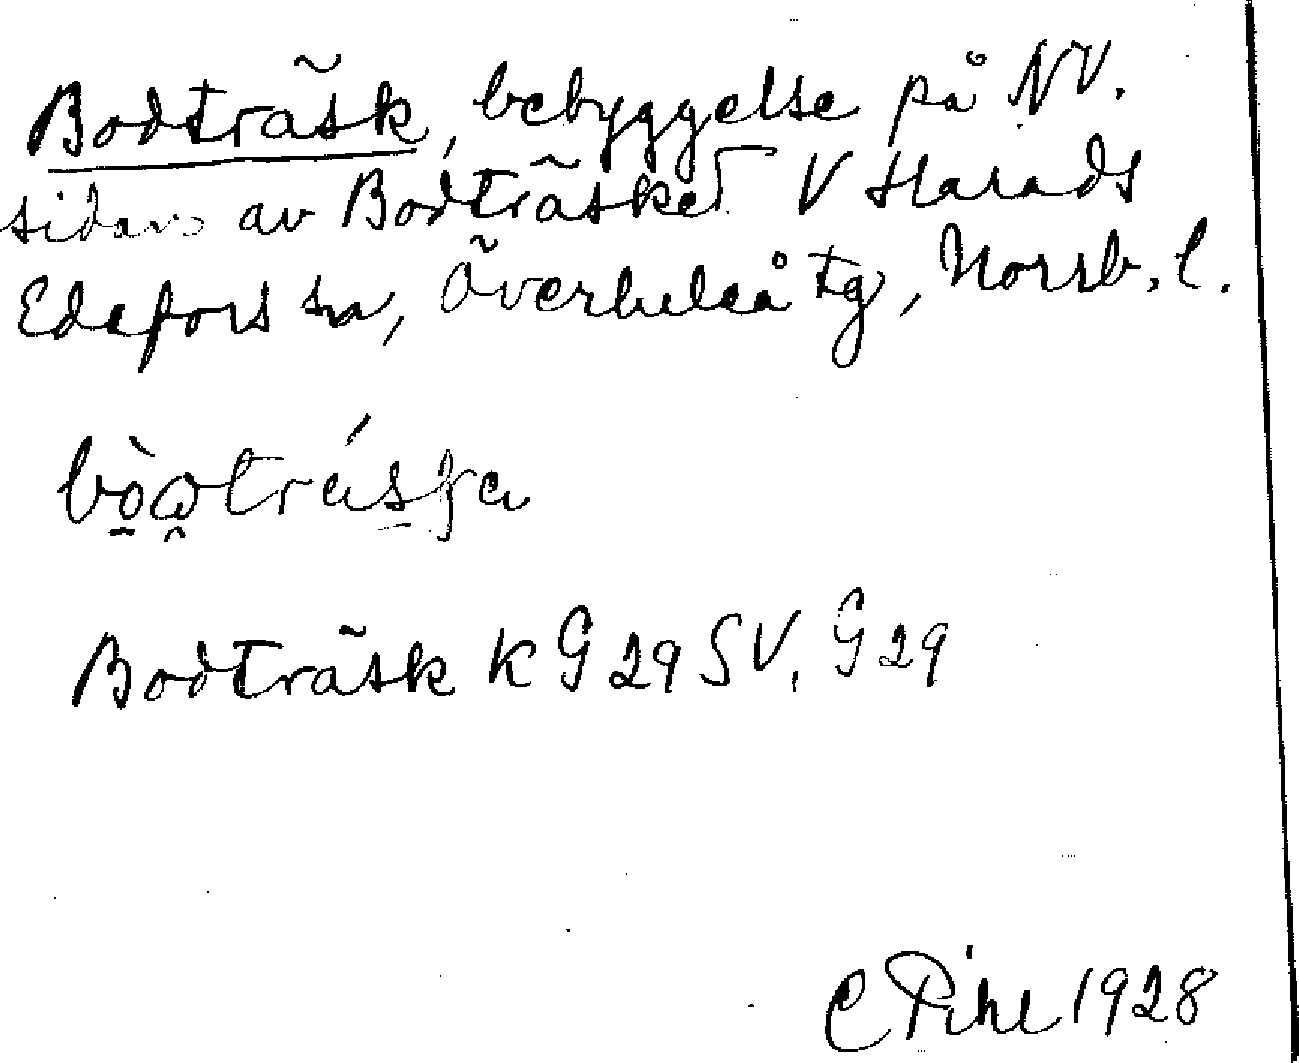 Bodträsk, bebyggelse på NV.
sidan av Bodträsket V Harads
Edefors sn, Överluleå tg, Norrb. l.
Bodträsk k G 29 SV. G 29
C Pihl 1928